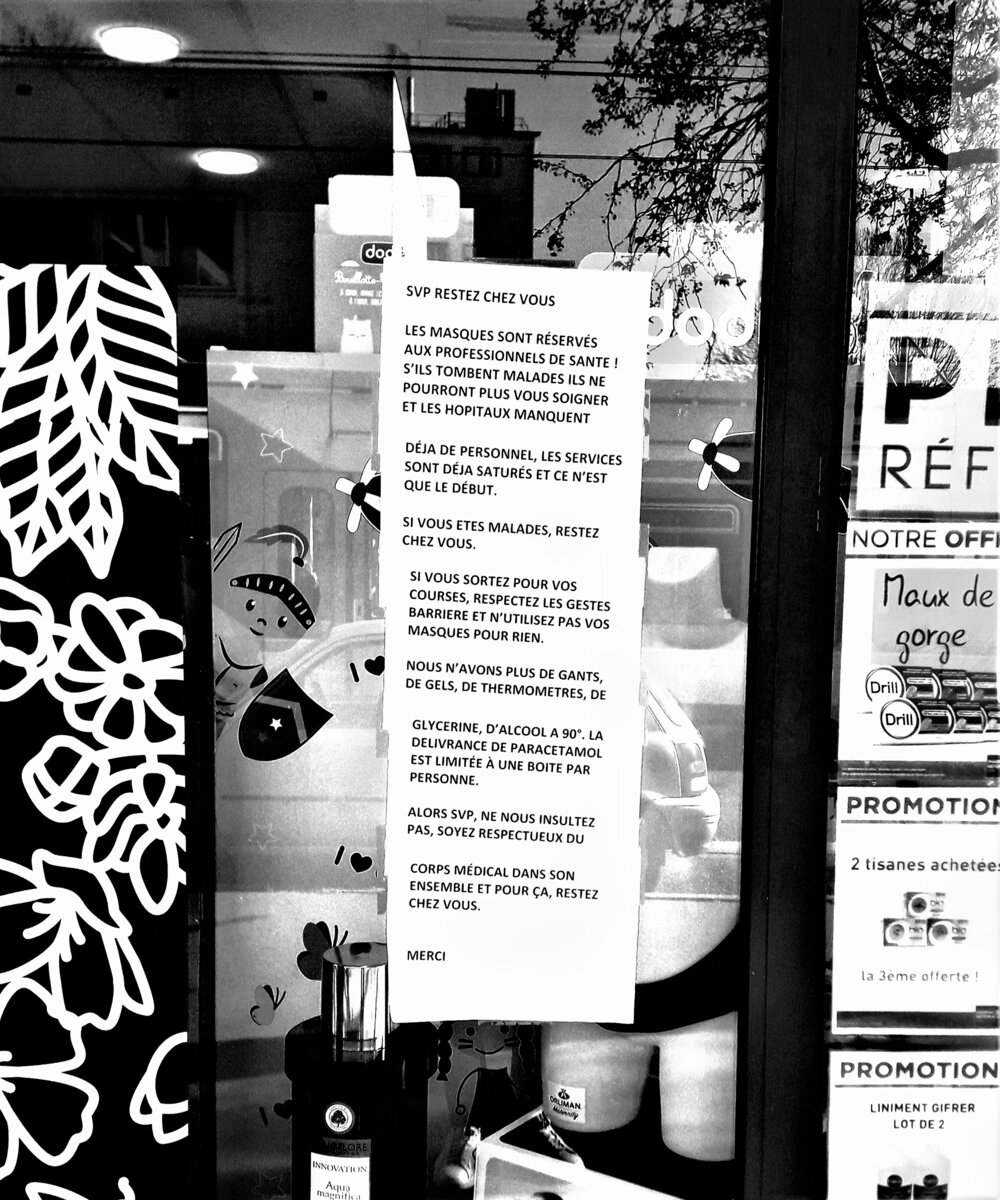 dodo
SVP RESTEZ CHEZ VOUS
LES MASQUES SONT RÉSERVÉS
AUX PROFESSIONNELS DE SANTE !
S'ILS TOMBENT MALADES ILS NE
POURRONT PLUS VOUS SOIGNER
ET LES HOPITAUX MANQUENT
DÉJA DE PERSONNEL, LES SERVICES
SONT DÉJA SATURÉS ET CE N'EST
QUE LE DÉBUT.
SI VOUS ETES MALADES, RESTEZ
CHEZ VOUS.
SI VOUS SORTEZ POUR VOS
COURSES, RESPECTEZ LES GESTES
BARRIERE ET N'UTILISEZ PAS VOS
MASQUES POUR RIEN.
NOUS N'AVONS PLUS DE GANTS,
DE GELS, DE THERMOMETRES, DE
GLYCERINE, D'ALCOOL A 90°. LA
DELIVRANCE DE PARACETAMOL
EST LIMITÉE À UNE BOITE PAR
PERSONNE.
ALORS SVP, NE NOUS INSULTEZ
PAS, SOYEZ RESPECTUEUX DU
CORPS MÉDICAL DANS SON
ENSEMBLE ET POUR ÇA, RESTEZ
CHEZ VOUS.
MERCI
I
I
ORLIMAN
Maternity
INNOVATION
Aqua
magnifica
RÉF
NOTRE OFF
Maux de
gorge
Drill
Drill
PROMOTION
2 tisanes achetées
bio
bio
bio
la 3ème offerte !
PROMOTION
LINIMENT GIFRER
LOT DE 2